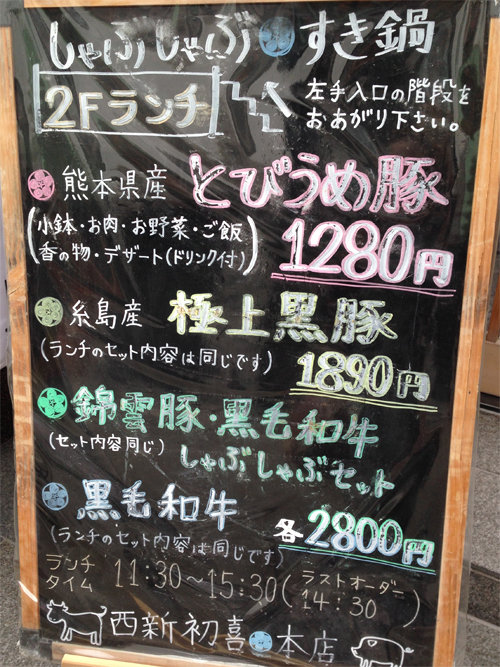 しゃぶしゃぶ すき鍋
2Fランチ
左手入口の階段を
おあがり下さい。
熊本県産 とびうめ豚
(小鉢・お肉・お野菜・ご飯
香の物・デザート(ドリンク付))
1280円
糸島産 極上黒豚
(ランチのセット内容は同じです)
1890円
錦雲豚・黒毛和牛
(セット内容同じ)
しゃぶしゃぶセット
黒毛和牛
(ランチのセット内容は同じです)
各2800円
ランチ
タイム 11:30〜15:30(ラストオーダー
14:30)
西新初喜 本店